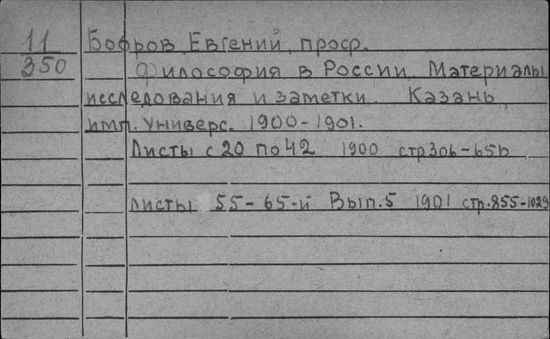 11 Бобров Евгений, проф.
350 Философия в России. Материалы
исследования и заметки. Казань
имп. Универс. 1900-1901.
Листы с 20 по 42 1900 стр 306-656
Листы 55-65-й Вып. 5 1901 стр. 855-1029